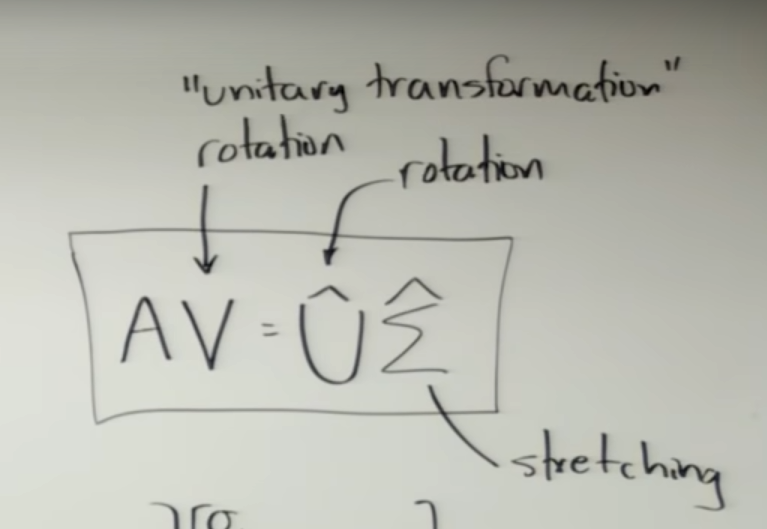 "unitary transformation"
rotation
rotation
AV = Û Σ̂
stretching